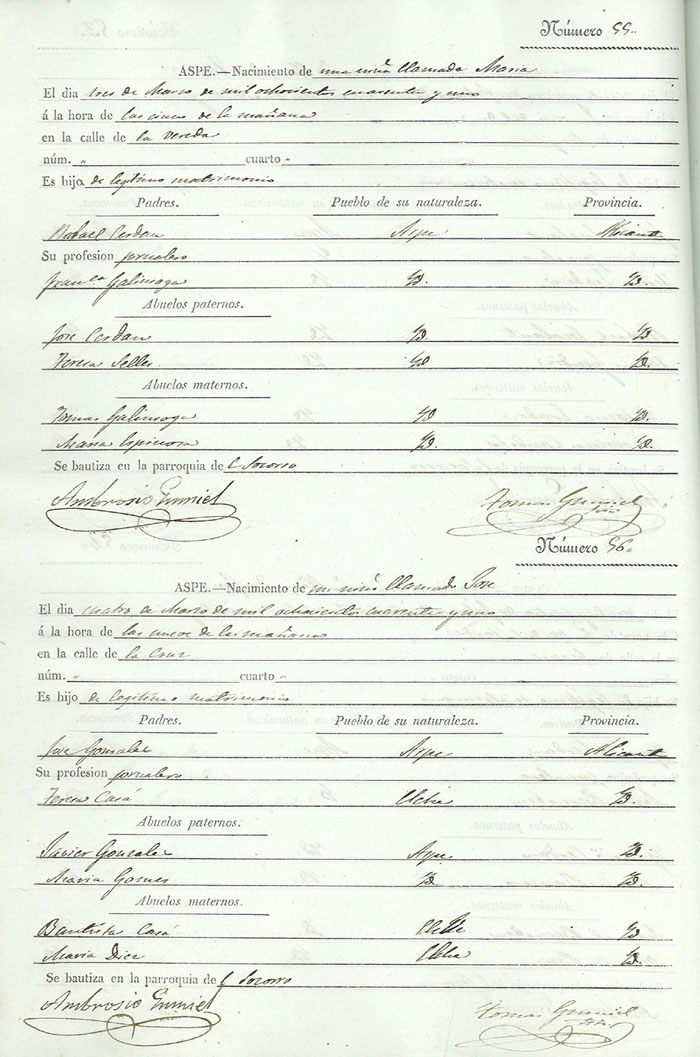 Número 55..
ASPE.—Nacimiento de una niña llamada Maria
El dia tres de Marzo de mil ochocientos cuarenta y uno
á la hora de las cinco de la mañana
en la calle de la Vereda
núm. „ cuarto „
Es hijo de legitimo matrimonio
Padres. Pueblo de su naturaleza. Provincia.
Rafael Cerdan Aspe Alicante
Su profesion jornalero
Franca Galinsoga Yd. Yd.
Abuelos paternos.
Jose Cerdan Yd. Yd.
Teresa Seller Yd. Yd.
Abuelos maternos.
Tomas Galinsoga Yd. Yd.
Maria Espinosa Yd. Yd.
Se bautiza en la parroquia del Socorro
Ambrosio Tomas
Número 56..
ASPE.—Nacimiento de un niño llamado Jose
El dia cuatro de Marzo de mil ochocientos cuarenta y uno
á la hora de las nueve de la mañana
en la calle de la Cruz
núm. „ cuarto „
Es hijo de legitimo matrimonio
Padres. Pueblo de su naturaleza. Provincia.
Jose Gonzalez Aspe Alicante
Su profesion jornalero
Teresa Casá Elche Yd.
Abuelos paternos.
Javier Gonzalez Aspe Yd.
Maria Gomes Yd. Yd.
Abuelos maternos.
Bautista Casá Elche Yd.
Maria Diez Elche Yd.
Se bautiza en la parroquia del Socorro
Ambrosio Tomas